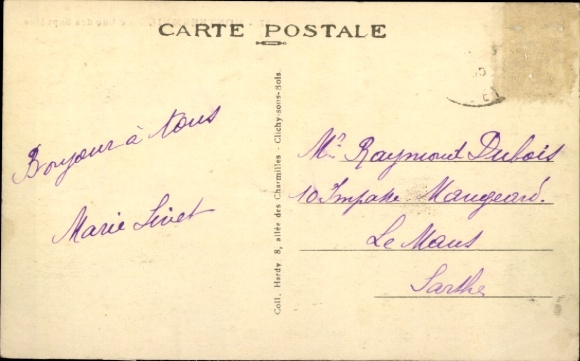 CARTE POSTALE
Bonjour à tous
Marie Livet
Coll. Hardy 8, allée des Charmilles - Clichy-sous-Bois.
Mr Raymond Dubois
10 Impasse Maugeard.
Le Mans
Sarthe